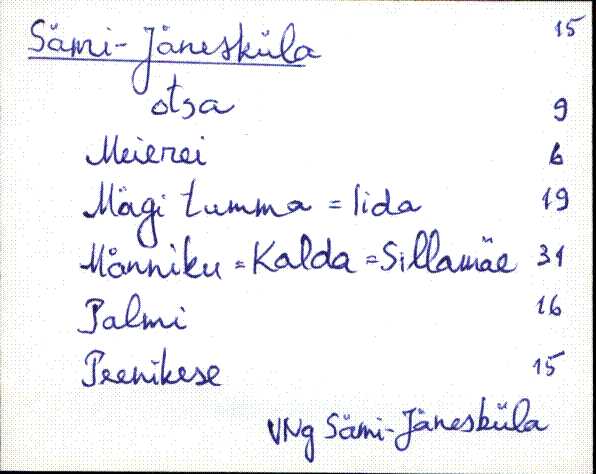 Sämi-Jänesküla 15
otsa 9
Meierei 6
Mägi Tumma = Iida 19
Männiku = Kalda = Sillamäe 31
Palmi 16
Peenikese 15
VNg Sämi-Jänesküla